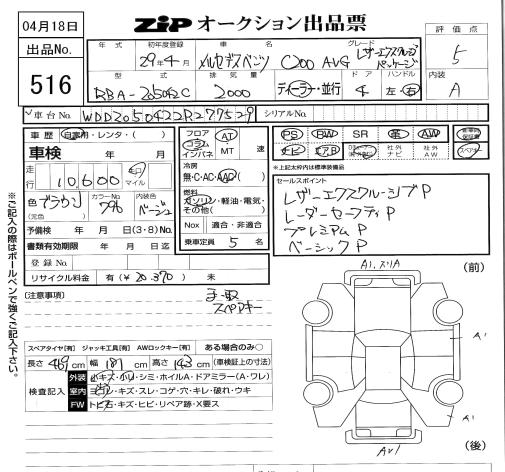 04月18日
ZiP オークション出品票
出品No.
516
年式 初年度登録 車名 グレード
29年4月 メルセデスベンツ C200 AVG レザーエクスクルーシブパッケージ
型式 排気量 ドア ハンドル
RBA-205042C 2000 ディーラー・並行 4 左・右
評価点
5
内装
A
車台No. WDD2050422R277529
シリアルNo.
車歴 自家用・レンタ・( )
車検 年 月
走行 10,600 km マイル
色 ブラウン (元色) カラーNo. 796 内装色 ベージュ
予備検 年 月 日(3・8)No.
書類有効期限 年 月 日迄
登録No.
リサイクル料金 有(¥20,370) 未
フロア コラム インパネ AT MT 速
冷房 無・C・AC・AAC
燃料 ガソリン・軽油・電気・その他( )
Nox 適合・非適合
乗車定員 5 名
PS PW SR 革 AW
ナビ TV 社外ナビ 社外AW
※上記太枠内は標準装備品
セールスポイント
レザーエクスクルーシブP
レーダーセーフティP
プレミアムP
ベーシックP
(注意事項)
手取
スペアキー
スペアタイヤ[有] ジャッキ工具[有] AWロックキー[有] ある場合のみ○
長さ 469 cm 幅 181 cm 高さ 143 cm (車検証上の寸法)
検査記入
外装 小キズ・小凹・シミ・ホイルA・ドアミラー(A・ワレ)
室内 ヨゴレ・キズ・スレ・コゲ・穴・キレ・破れ・ウキ
FW トビ石・キズ・ヒビ・リペア跡・X要ス
(前)
A1.スリA
A1
A1
AU1
(後)
※ご記入の際はボールペンで強くご記入下さい。